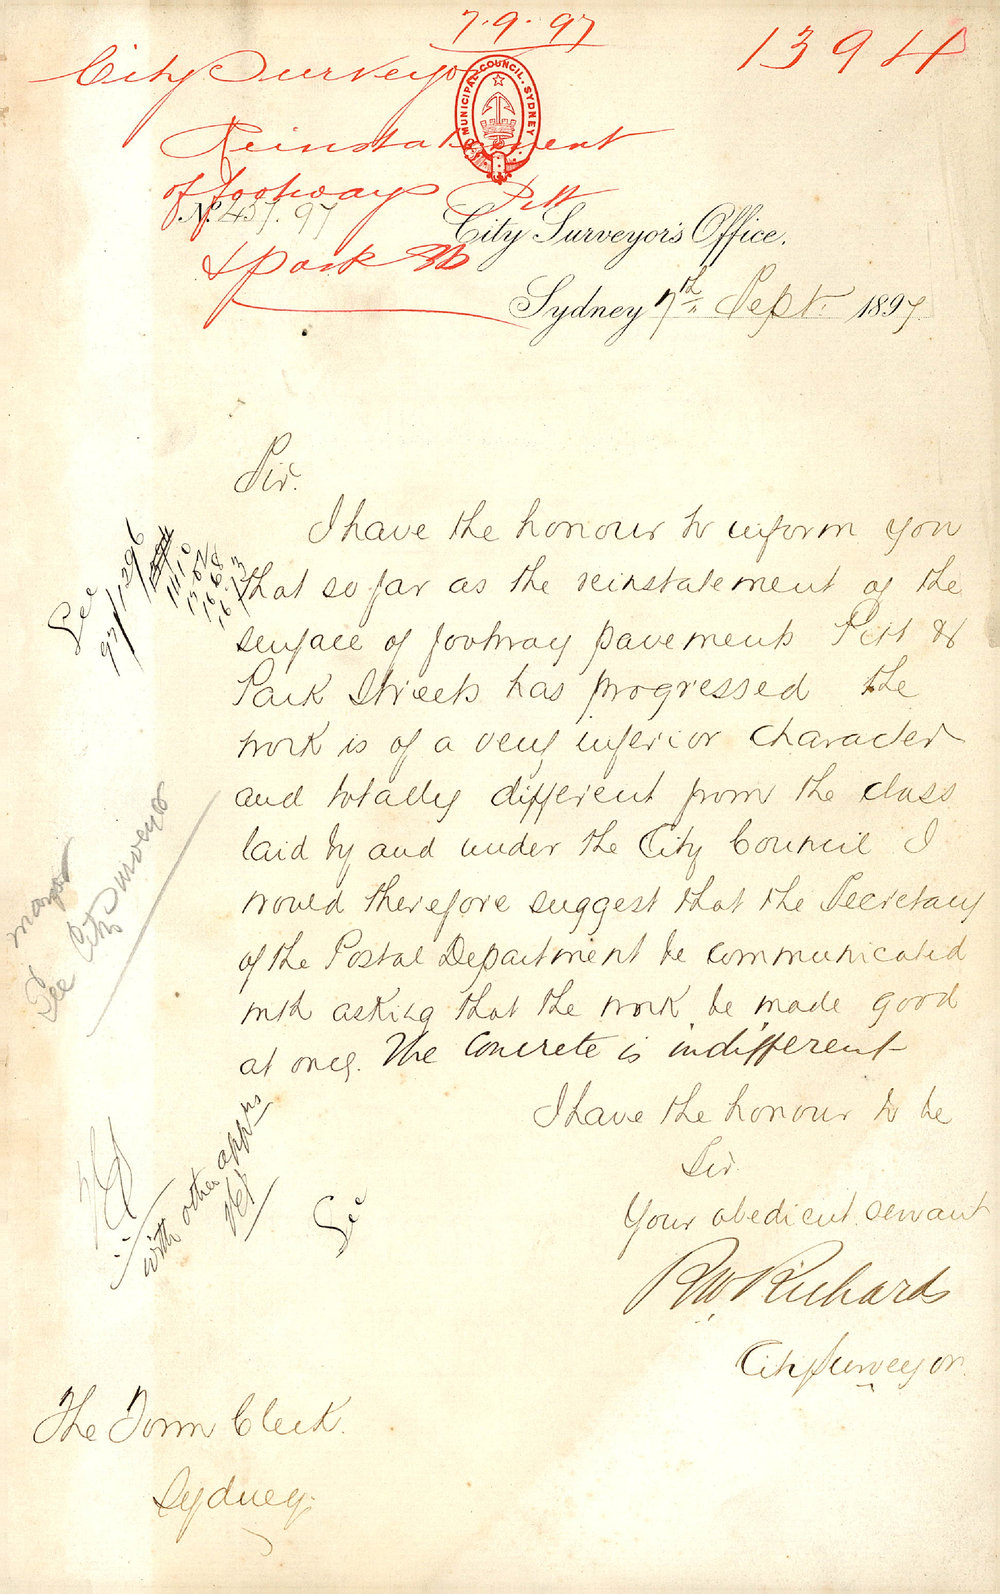 7.9.97
1394
City Surveyor
MUNICIPAL COUNCIL. SYDNEY
Reinstatement
of footway Pitt
& Park St
No. 437.97
City Surveyor's Office.
Sydney 7th Sept. 1897
Sir.
I have the honour to inform you
that so far as the reinstatement of the
surface of footway pavements Pitt &
Park Streets has progressed the
work is of a very inferior character
and totally different from the class
laid by and under the City Council I
would therefore suggest that the Secretary
of the Postal Department be communicated
with asking that the work be made good
at once. The Concrete is indifferent
I have the honour to be
Sir
Your obedient servant
RW Richards
City Surveyor.
The Town Clerk.
Sydney.
See
97/1396
1110
16.13
Mayor
See City Surveyor
with otherapp.ns
See